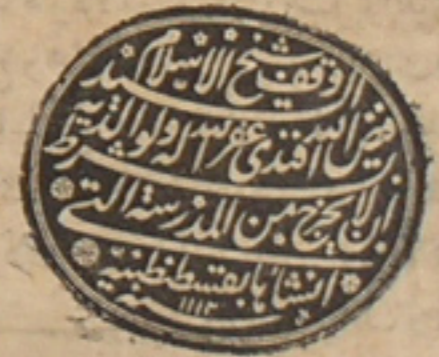 وقف شيخ الاسلام السيد
فيض الله افندى غفر الله له ولوالديه
بشرط ان لا يخرج من المدرسة التى
انشأها بقسطنطينية
سنه ١١١٣